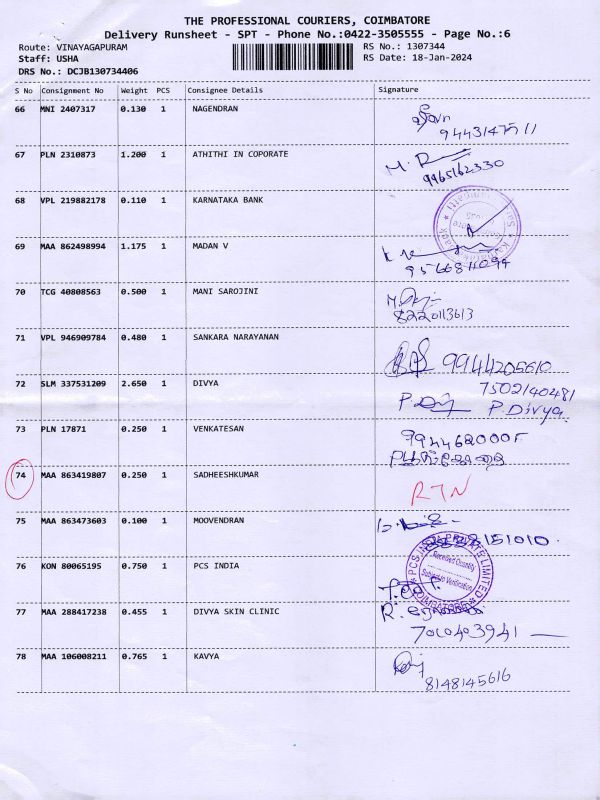 THE PROFESSIONAL COURIERS, COIMBATORE
Delivery Runsheet - SPT - Phone No.:0422-3505555 - Page No.:6
Route: VINAYAGAPURAM RS No.: 1307344
Staff: USHA RS Date: 18-Jan-2024
DRS No.: DCJB130734406
S No Consignment No Weight PCS Consignee Details Signature
66 MNI 2407317 0.130 1 NAGENDRAN
67 PLN 2310873 1.200 1 ATHITHI IN COPORATE
9965162330
68 VPL 219882178 0.110 1 KARNATAKA BANK
69 MAA 862498994 1.175 1 MADAN V
70 TCG 40808563 0.500 1 MANI SAROJINI
8220113613
71 VPL 946909784 0.480 1 SANKARA NARAYANAN
9944205610
72 SLM 337531209 2.650 1 DIVYA
7502140481
P. Divya
73 PLN 17871 0.250 1 VENKATESAN
74 MAA 863419807 0.250 1 SADHEESHKUMAR RTN
75 MAA 863473603 0.100 1 MOOVENDRAN
76 KON 80065195 0.750 1 PCS INDIA
PCS INDIA PRIVATE LIMITED
Received Quantity
Subject to Verification
COIMBATORE
77 MAA 288417238 0.455 1 DIVYA SKIN CLINIC
7010403941
78 MAA 106008211 0.765 1 KAVYA
8148145616